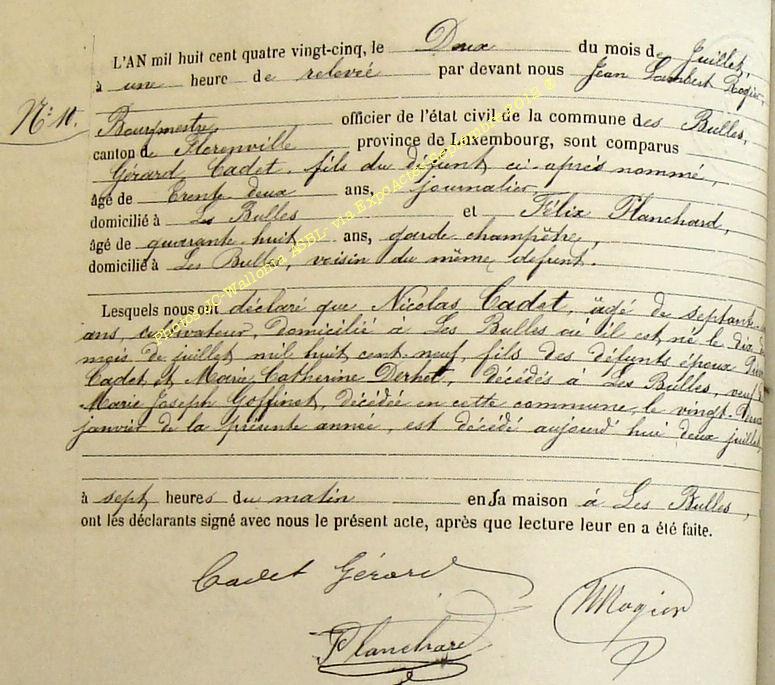 L'AN mil huit cent quatre vingt-cinq, le Deux du mois de Juillet,
à une heure de relevée par devant nous Jean Lambert Rogier,
N° 10.
Bourgmestre officier de l'état civil de la commune des Bulles,
canton de Florenville province de Luxembourg, sont comparus
Gérard Cadet, fils du défunt ci-après nommé,
âgé de trente deux ans, journalier
domicilié à Les Bulles et Félix Planchard,
âgé de quarante huit ans, garde champêtre,
domicilié à Les Bulles, voisin du même défunt.
Lesquels nous ont déclaré que Nicolas Cadet, âgé de septante
ans, cultivateur, domicilié à Les Bulles où il est né le dix
mois de juillet mil huit cent neuf, fils des défunts époux
Cadet et Marie Catherine décédés à Les Bulles, veuf
Marie Joseph Goffinet, décédée en cette commune, le vingt
janvier de la présente année, est décédé aujourd'hui deux juillet
à sept heures du matin en sa maison à Les Bulles,
ont les déclarants signé avec nous le présent acte, après que lecture leur en a été faite.
Cadet Gérard
Rogier
Planchard
Photos JC-Wallonia ASBL- via ExpoActes